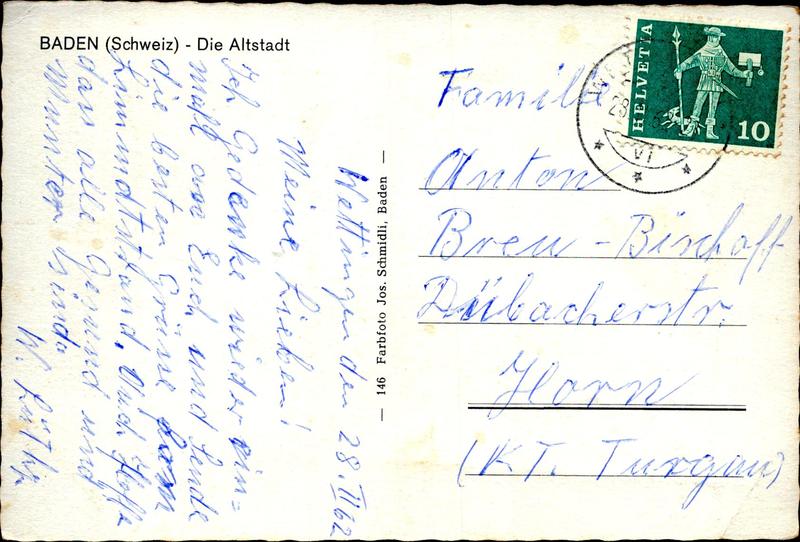 BADEN (Schweiz) - Die Altstadt
Wettingen den 28. II 62
Meine Lieben!
Ich Gedenke wieder ein=
mahl an Euch und Sende
die besten Grüsse vom
Limmatstrand, Und Hoffe
das alle Gesund und
Munter sind.
W. Lüthy
— 146 Farbfoto Jos. Schmidli, Baden —
HELVETIA
10
28
VI
Familie
Anton
Breu - Bischoff
Dübacherstr.
Horn
(KT. Turgau)